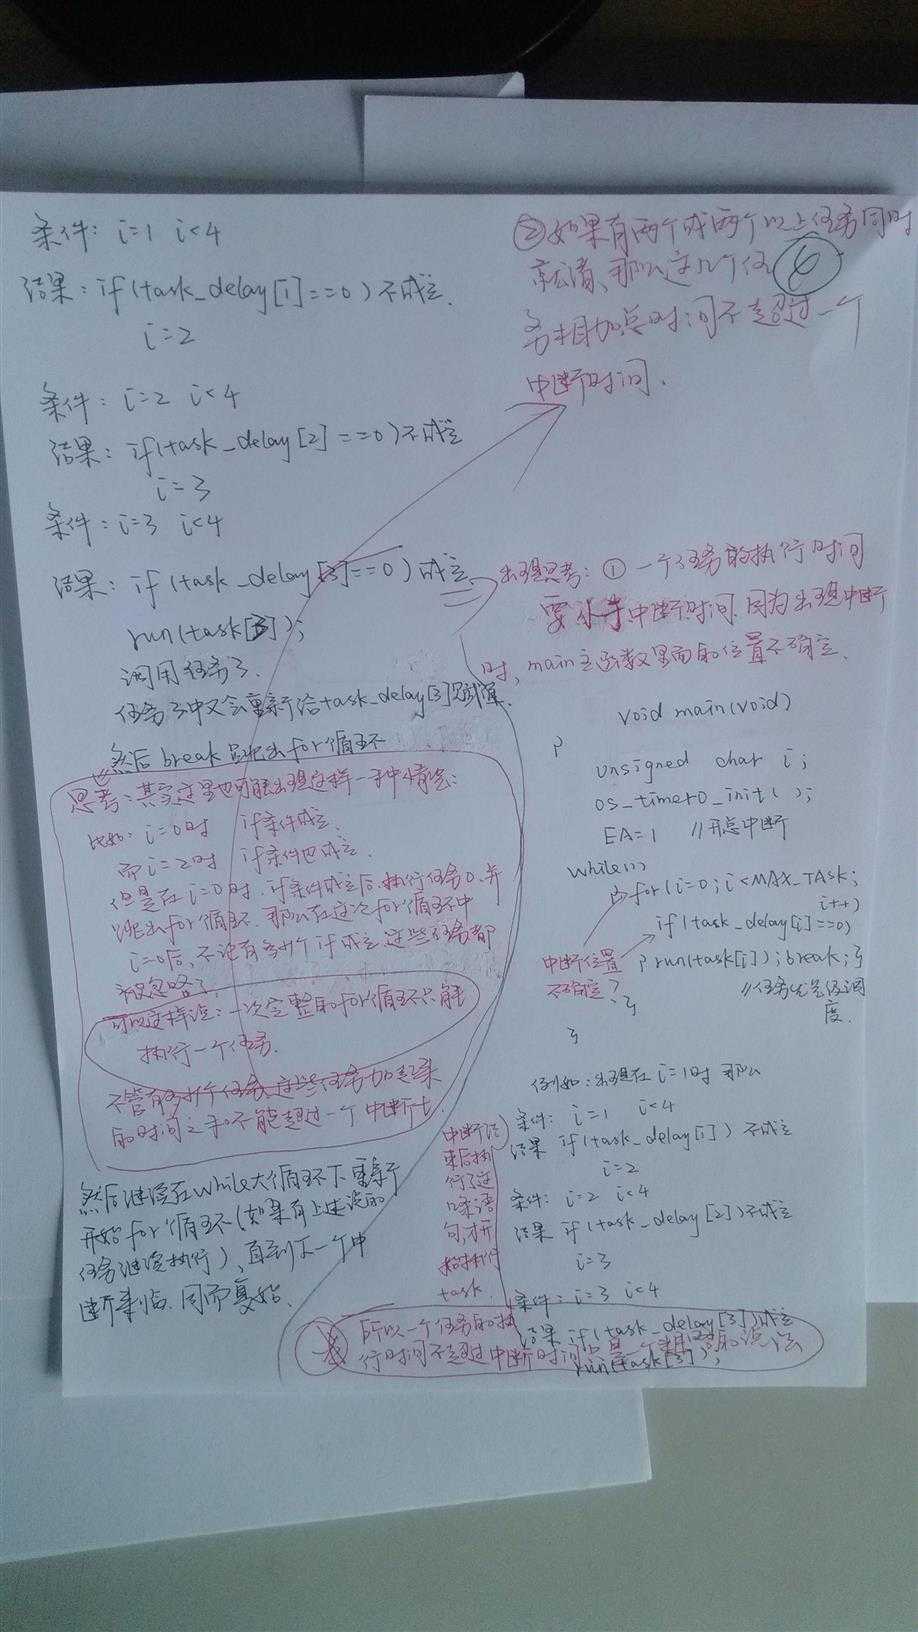 条件: i=1 i<4
结果: if(task_delay[1]==0) 不成立.
i=2
条件: i=2 i<4
结果: if(task_delay[2]==0) 不成立
i=3
条件: i=3 i<4
结果: if(task_delay[3]==0) 成立.
run(task[3]);
调用任务3.
任务3中又会重新给task_delay[3]赋值.
然后break跳出for循环
思考: 其实这里也可能出现这样一种情况:
比如: i=0时 if条件成立.
而i=2时 if条件也成立.
但是在i=0时. if条件成立后. 执行任务0. 并
跳出for循环. 那么在这次for循环中
i=0后, 不论有多少个if成立 这些任务都
被忽略了.
可以这样说: 一次完整的for循环只能
执行一个任务.
不管有多少个任务 这些任务加起来
的时间之和不能超过一个中断
然后继续在while大循环下 重新
开始for循环(如果有上述说的
任务继续执行), 直到下一个中
断来临. 周而复始.
②如果有两个或两个以上任务同时
就绪、那么这几个任
⑥
务相加总时间不超过一个
中断时间.
出现思考: ① 一个任务的执行时间
要小于中断时间. 因为出现中断
时, main主函数里面的位置不确定.
void main(void)
{
unsigned char i;
os_timer0_init();
EA=1 //开总中断
while(1)
{for(i=0; i<MAX_TASK;
i++)
if(task_delay[i]==0)
{run(task[i]); break;}
//任务优先级调
度.
中断位置
不确定?
}
}
例如: 出现在 i=1时 那么
条件: i=1 i<4
结果 if(task_delay[1]) 不成立
i=2
条件: i=2 i<4
结果 if(task_delay[2]) 不成立
i=3
条件: i=3 i<4
结果 if(task_delay[3]) 成立
run(task[3]);
中断结
束后执
行了这
句, 才开
始执行
task.
所以一个任务的执
行时间不超过中断时间 是一个 的说法